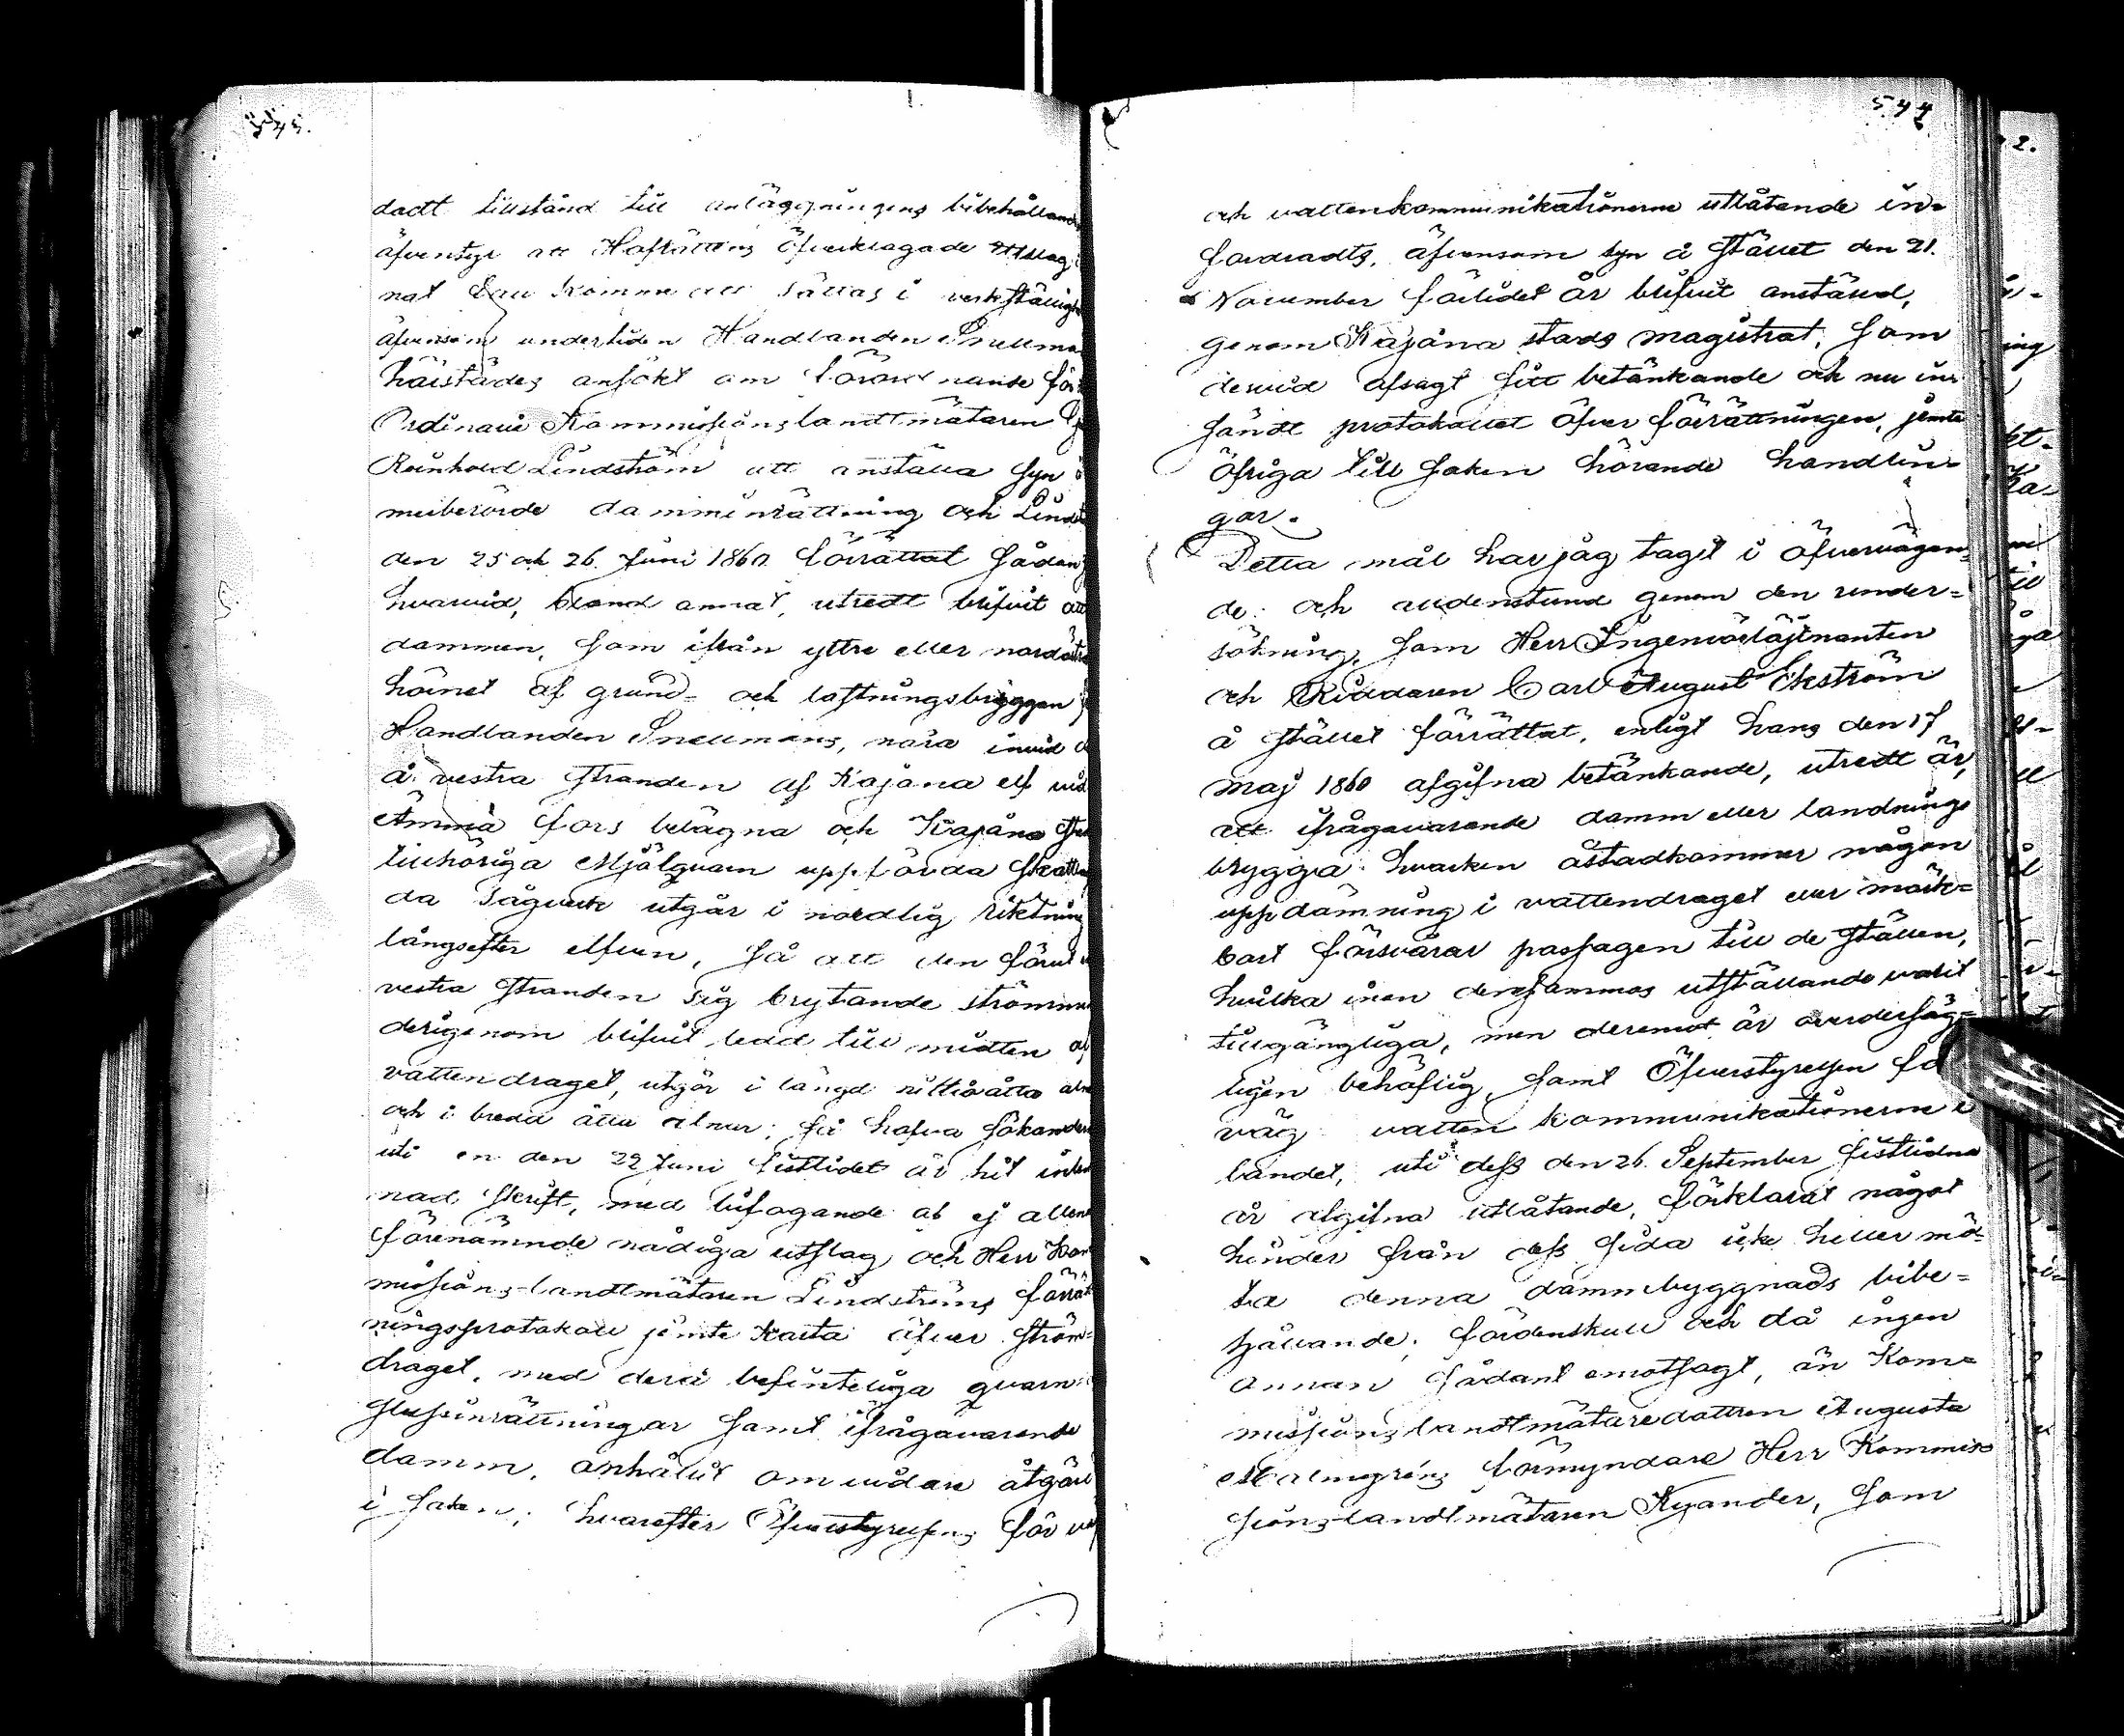 545.
dadt tillstånd till anläggningens bibehållande
äfventyr att Hofrättens öfverklagade utslag
nat Lau komme att sättas i verkställigh
äfvensom undertiden Handlanden Snellman
härstädes ansökt om förordnande för
Ordinarie Kommissionslandtmätaren
Reinhold Lindström att anställa syn å
merberörde damminrättning och Lindst
den 25 och 26 Juni 1860 förrättat sådan
hvarvid, bland annat, utredt blifvit att
dammen, som ifrån yttre eller nordöstra
hörnet af grund- och lastningsbryggan
Handlanden Snellmans, nära invid
å vestra stranden af Kajana elf vid
Ämmä fors belägna och Kajana Stad
tillhöriga Mjölqvarn uppförda skattlag
da sågverk utgår i nordlig riktning
långsefter elfven, så att den förut
vestra stranden sig brytande strömmen
derigenom blifvit ledd till midten af
vattendraget, utgör i längd nittioåtta alnar
och i bredd åtta alnar; så hafva sökanden
uti en den 22 Juni sistlidet år hit inläm
nad skrift, med bifogande af ej allenast
förenämnde nådiga utslag och Herr Kom
missions-landtmätaren Lindströms förrätt
ningsprotokoll jemte karta öfver ström-
draget, med derå befinteliga qvarn-
slussinrättningar samt ifrågavarande
damm, anhållit om vidare åtgärd
i saken; hvarefter Öfverstyrelsens för väg
544
och vattenkommunikationerne utlåtende in-
fordradts, äfvensom syn å stället den 21.
November förlidet år blifvit anstäld,
genom Kajana stads magistrat, som
dervid afsagt sitt betänkande och nu in-
sändt protokollet öfver förrättningen, jemte
öfriga till saken hörande handlin-
gar.
Detta mål har jag tagit i öfvervägan-
de; och alldenstund genom den under-
sökning, som Herr Ingeniörlöjtnanten
och Riddaren Carl August Ekström
å stället förrättat, enligt hans den 17
maj 1860 afgifna betänkande, utredt är,
att ifrågavarande damm eller landnings
brygga hvarken åstadkommer någon
uppdämning i vattendraget eller märk-
bart försvårar passagen till de ställen,
hvilka inan densammas utställande varit
tillgängliga, men deremot är oundersäg-
ligen behöflig, samt Öfverstyrelsen fö
väg vatten kommunikationerne i
landet, uti dess den 26 September sistlidna
år afgifna utlåtande, förklarat något
hinder från dess sida icke heller mö-
ta denna dammbyggnads bibe-
hållande; fördenskull och då ingen
annan sådant emotsagt, än Kom-
missions landtmätaredottren Augusta
Malmgréns förmyndare Herr Kommis
sions-landtmätaren Kyander, som